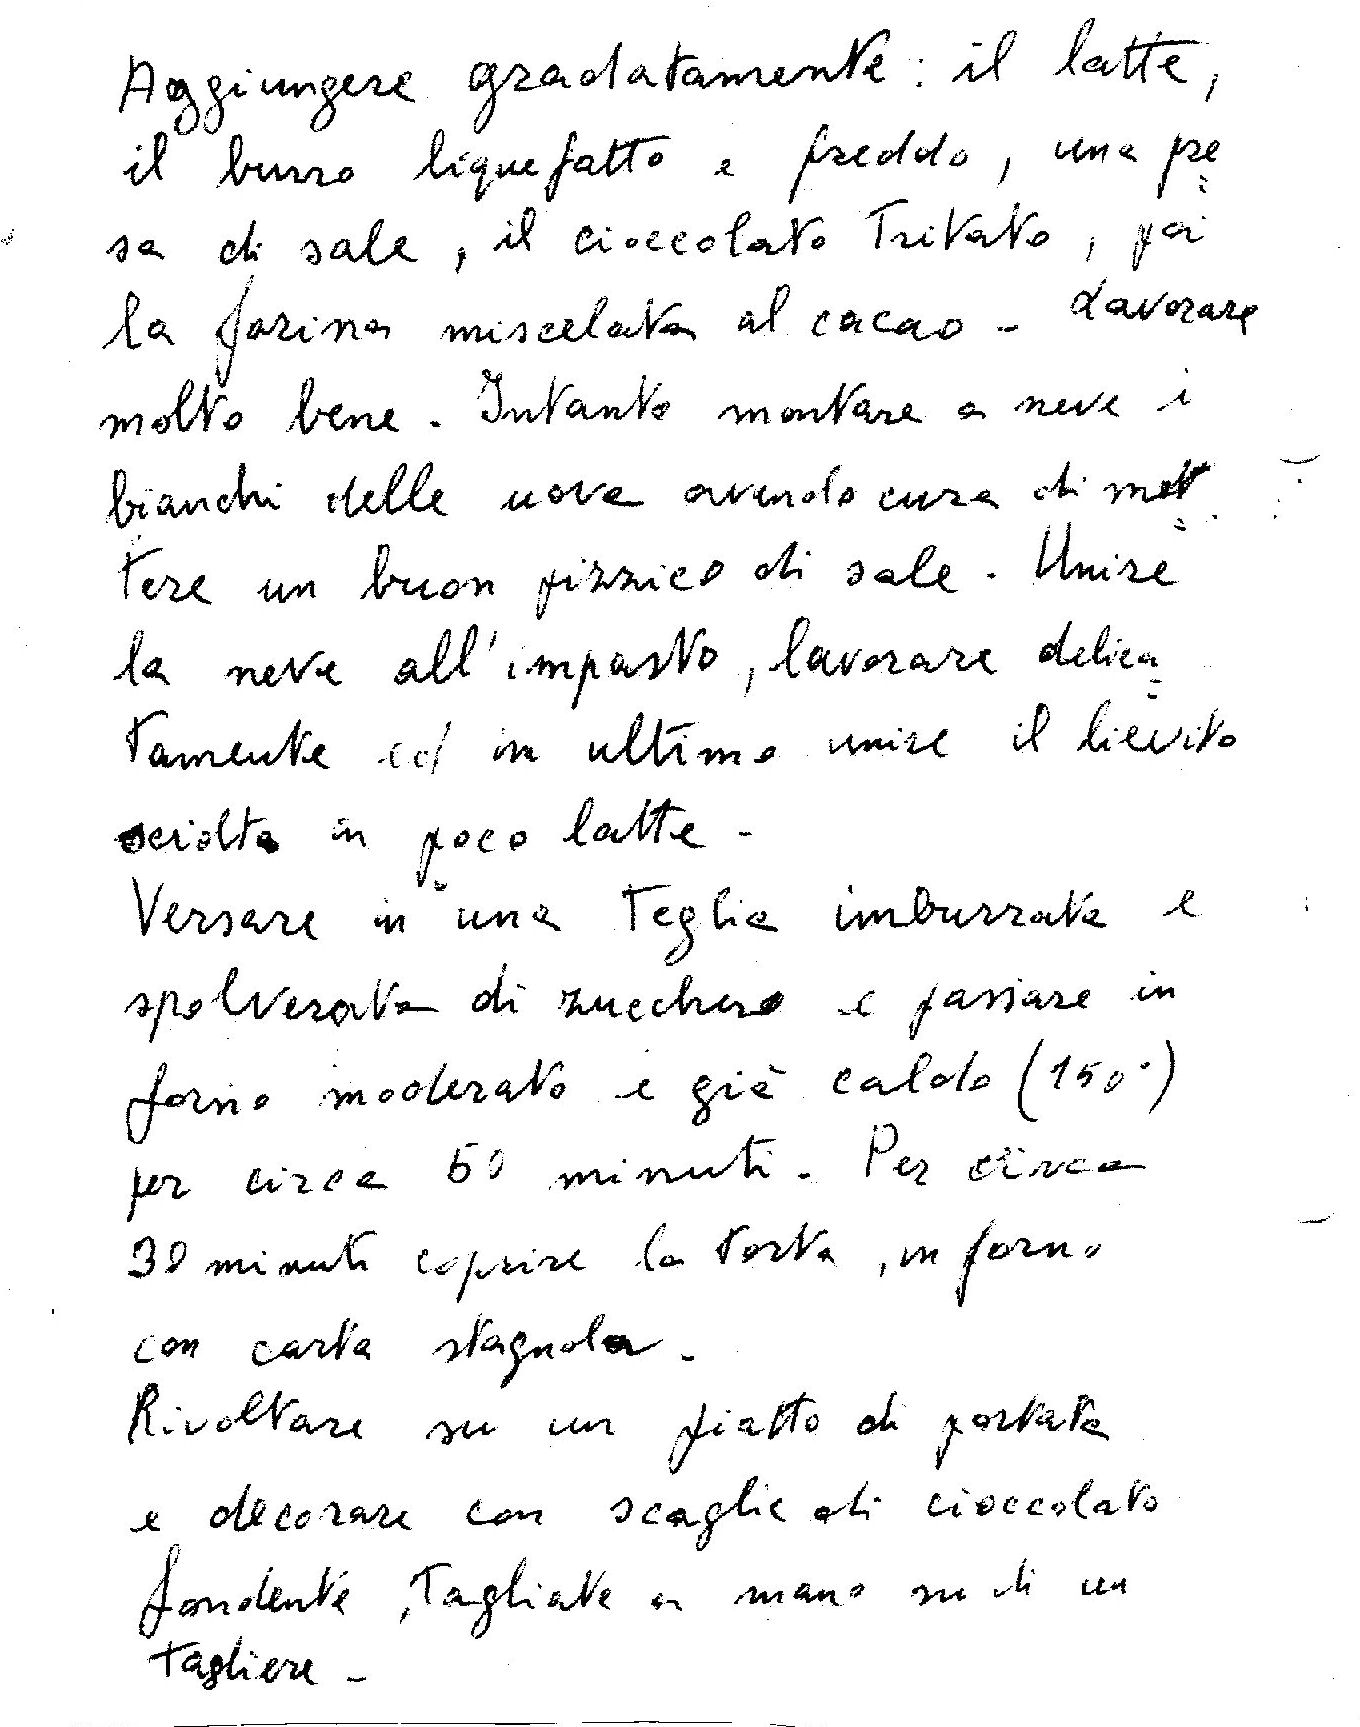 Aggiungere gradatamente: il latte,
il burro liquefatto e freddo, una pre=
sa di sale, il cioccolato tritato, poi
la farina miscelata al cacao - Lavorare
molto bene. Intanto montare a neve i
bianchi delle uova avendo cura di met=
tere un buon pizzico di sale. Unire
la neve all'impasto, lavorare delica=
tamente ed in ultimo unire il lievito
sciolto in poco latte -
Versare in una teglia imburrata e
spolverata di zucchero e passare in
forno moderato e già caldo (150°)
per circa 50 minuti. Per circa
30 minuti coprire la torta, in forno
con carta stagnola.
Rivoltare su un piatto di portata
e decorare con scaglie di cioccolato
fondente, tagliate a mano su di un
tagliere -